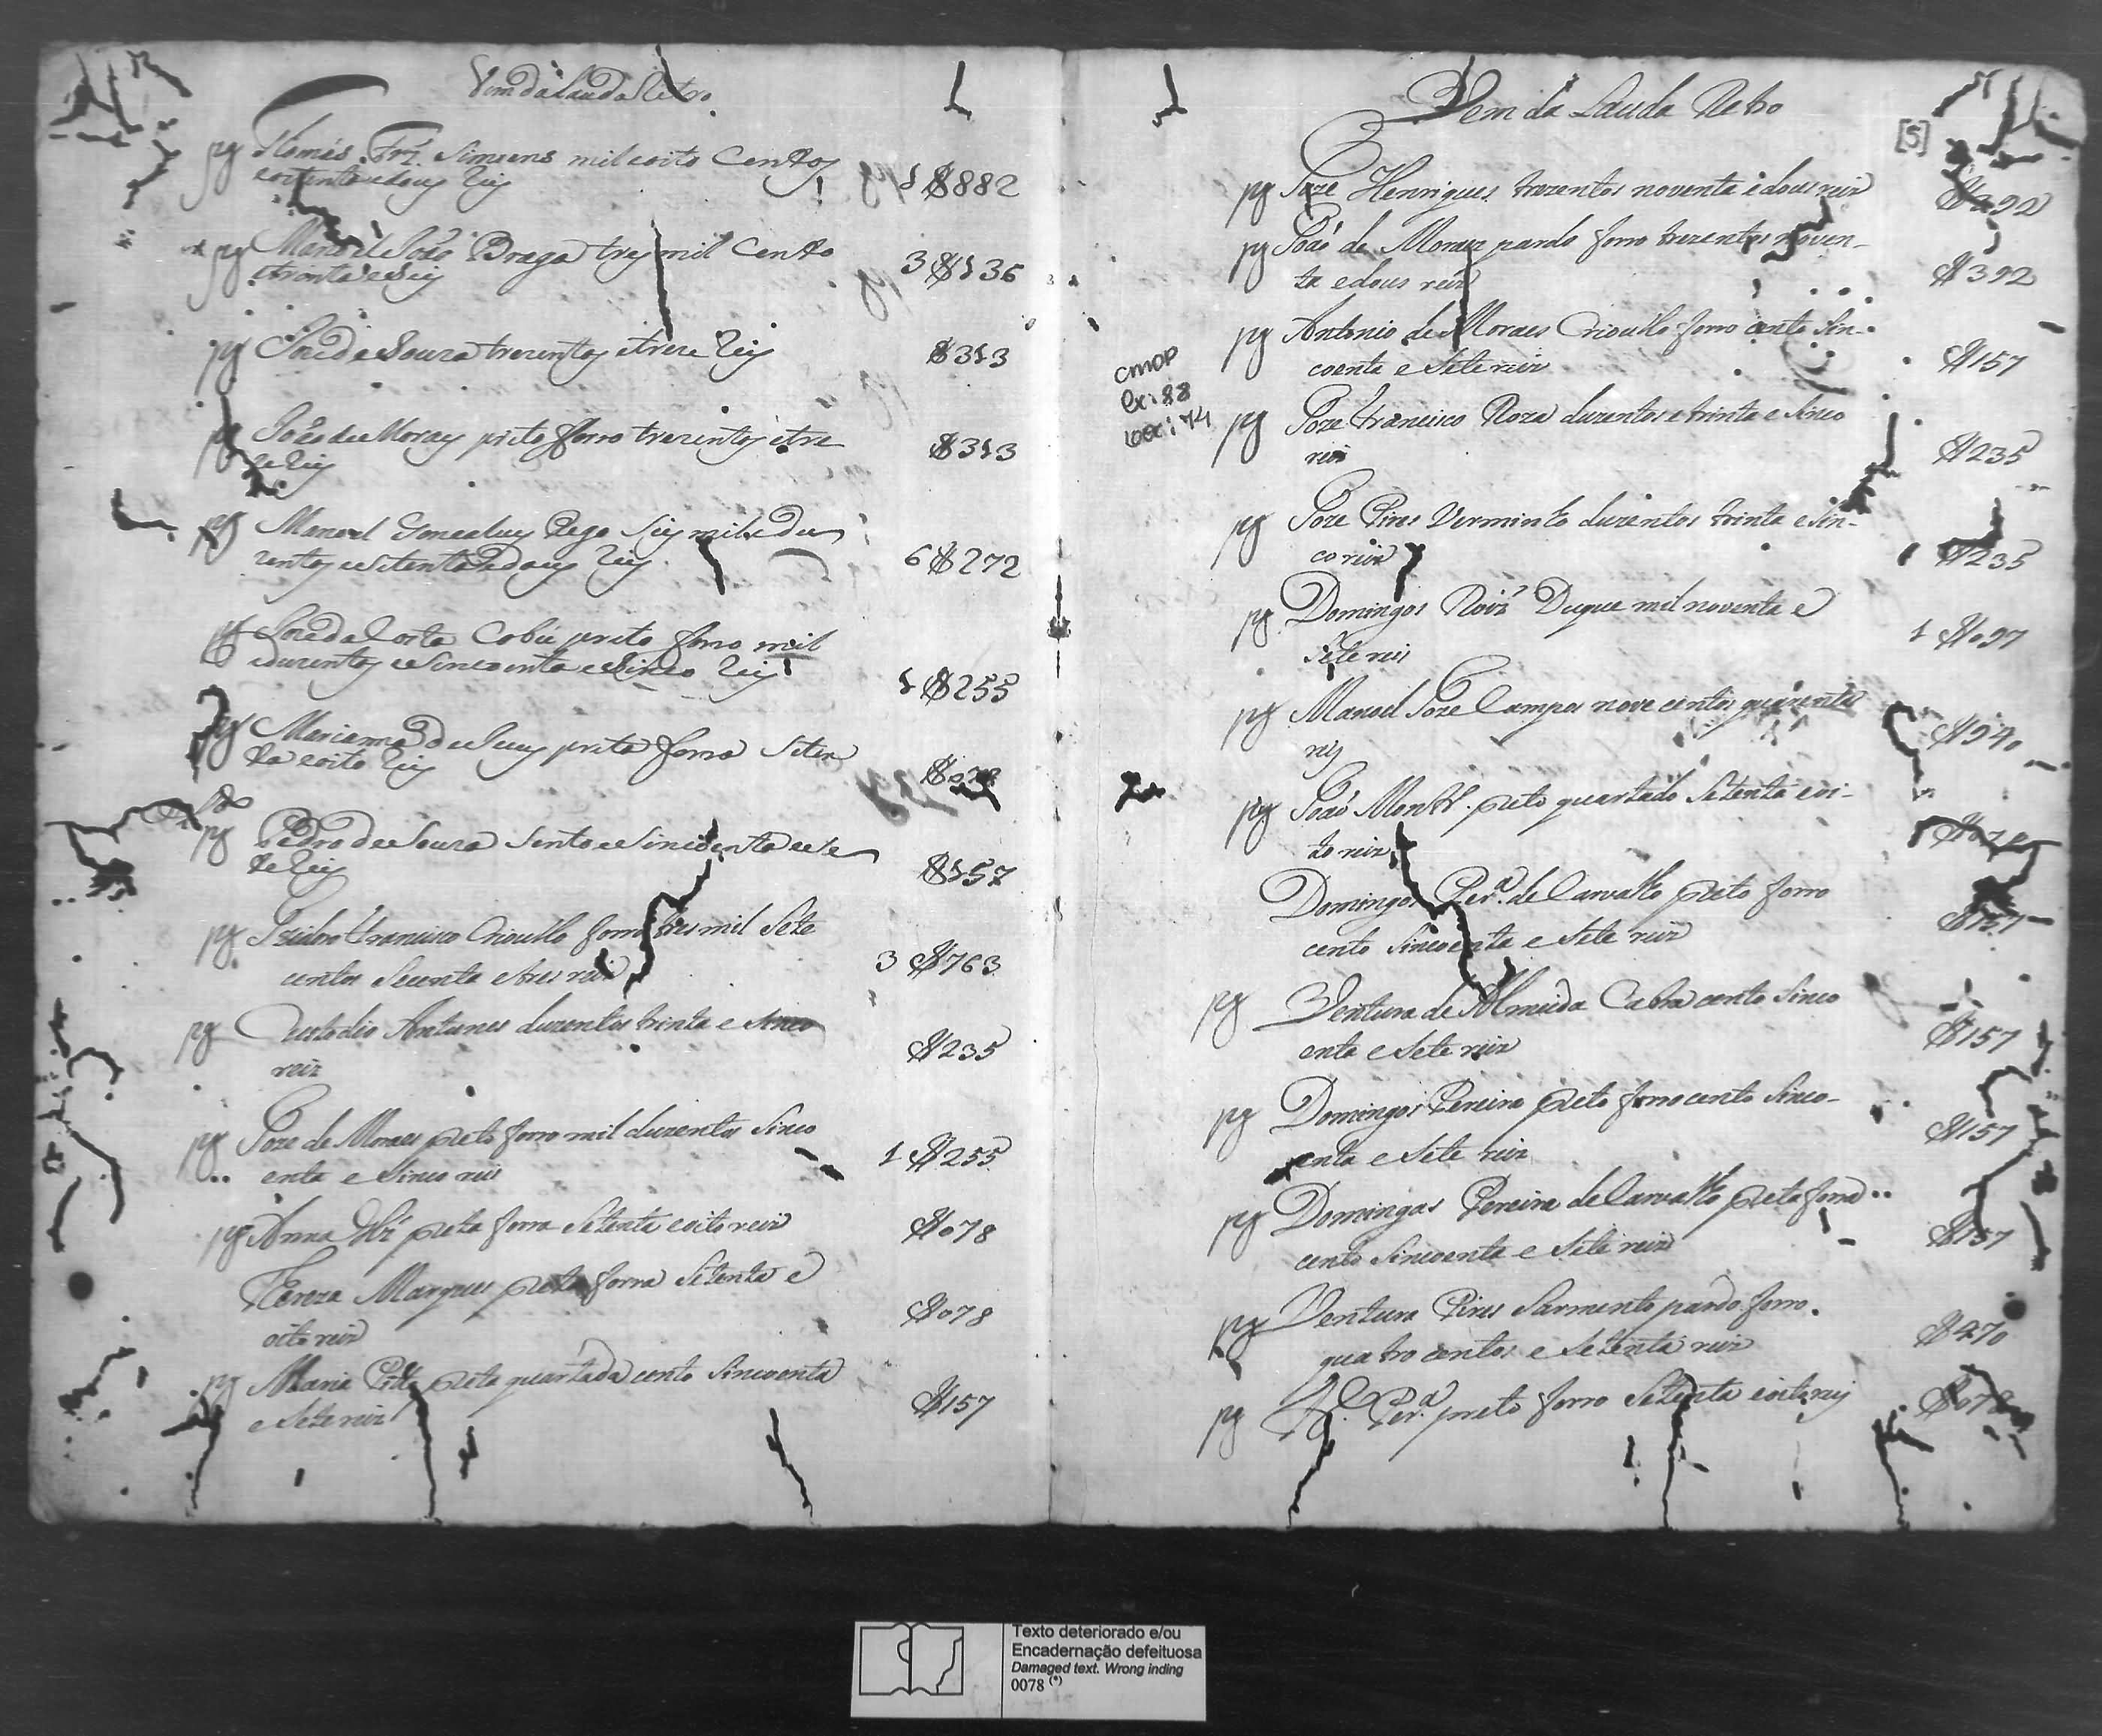 Vem da Lauda Retro
pg Thomás Frz. Simoens mil e oito Centos
e oitenta e dous Reis 1$882
pg Manoel João Braga tres mil Cento
e tronta e Seis 3$136
pg José de Souza trezentos e treze Reis $313
pg João de Moraes preto forro trezentos e tre
ze Reis $313
pg Manoel Goncalves Rego Seis mil e du
zentos e Setenta e dous Reis 6$272
pg José da Costa Cobú preto forro mil
e duzentos e Sincoenta e Sinco Reis 1$255
pg Marianna de preta forra Seten
ta e oito Reis $078
pg Pedro de Souza Sento e Sincoenta e Se
te Reis $157
pg Izidoro Francisco Crioullo forro tres mil Sete
centos Secenta e tres reis 3$763
pg Custodio Antunes duzentos trinta e Sinco
reiz $235
pg Joze de Moraes preto forro mil duzentos Sinco
enta e Sinco reis 1$255
pg Anna preta forra Setenta e oito reiz $078
Thereza Marques preta forra Setenta e
oito reiz $078
pg Maria preta quartada cento Sincoenta
e Sete reiz $157
Vem da Lauda Retro
[5]
pg Joze Henriques trezentos noventa e dous reiz $392
pg João de Moraes pardo forro trezentos noven-
ta e dous reiz $392
pg Antonio de Moraes Crioullo forro cento Sin-
coenta e Sete reiz $157
CMOP
Cx: 88
DOC: 74
pg Joze Francisco Roza duzentos e trinta e Sinco
reiz $235
pg Joze Pires Verminto duzentos trinta e Sin-
co reiz $235
pg Domingos Roiz Duque mil noventa e
Sete reis 1$097
pg Manoel Joze Campos nove centos quarenta
reis $940
pg João Montr. preto quartado Setenta e oi-
to reiz $078
Domingos Per.a de Carvalho preto forro
cento Sincoenta e Sete reiz $157
pg Ventura de Almeida Cabra cento Sinco
enta e Sete reiz $157
pg Domingos Pereira preto forro cento Sinco-
enta e Sete reiz $157
pg Domingas Pereira de Carvalho preta forra
cento Sincoenta e Sete reiz $157
pg Ventura Pires Sarmento pardo forro
quatro centos e Setenta reiz $470
pg Per.a preto forro Setenta e oito reis $078
Texto deteriorado e/ou
Encadernação defeituosa
Damaged text. Wrong inding
0078 (*)